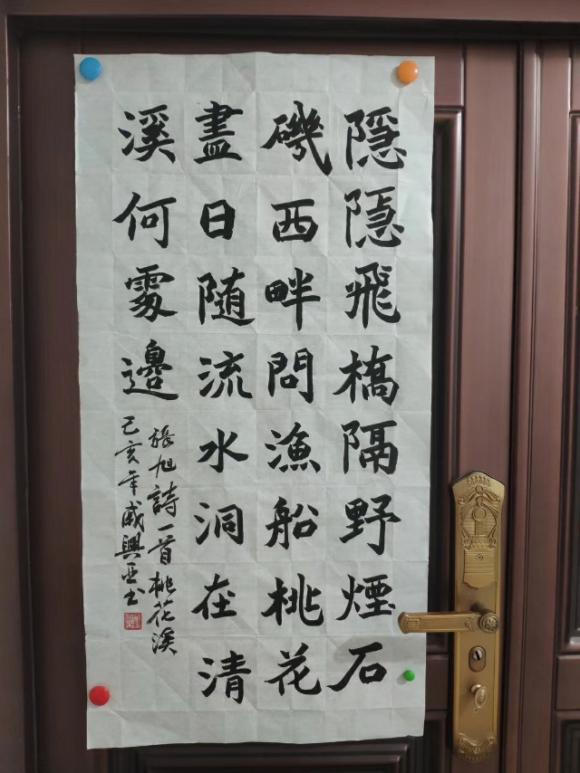 隱隱飛橋隔野煙石
磯西畔問漁船桃花
盡日随流水洞在清
溪何處邊
張旭詩一首桃花溪
己亥年咸興亞书